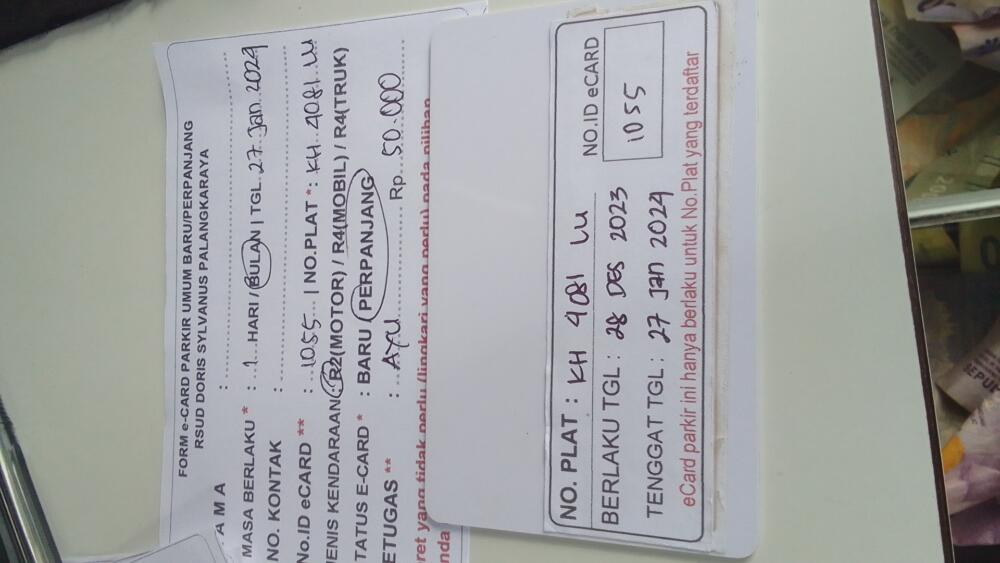 FORM e-CARD PARKIR UMUM BARU/PERPANJANG
RSUD DORIS SYLVANUS PALANGKARAYA
AMA :
MASA BERLAKU * : 1 HARI / BULAN | TGL. 27 Jan 2024
NO. KONTAK :
No.ID eCARD ** : 1055 | NO.PLAT *: KH 4081 LU
JENIS KENDARAAN : R2(MOTOR) / R4(MOBIL) / R4(TRUK)
TATUS E-CARD * : BARU / PERPANJANG
ETUGAS ** : AYU Rp 50.000
ret yang tidak perlu (lingkari yang perlu) pada pilihan
nda
NO. PLAT : KH 4081 LU
NO.ID eCARD
1055
BERLAKU TGL : 28 DES 2023
TENGGAT TGL : 27 Jan 2024
eCard parkir ini hanya berlaku untuk No.Plat yang terdaftar